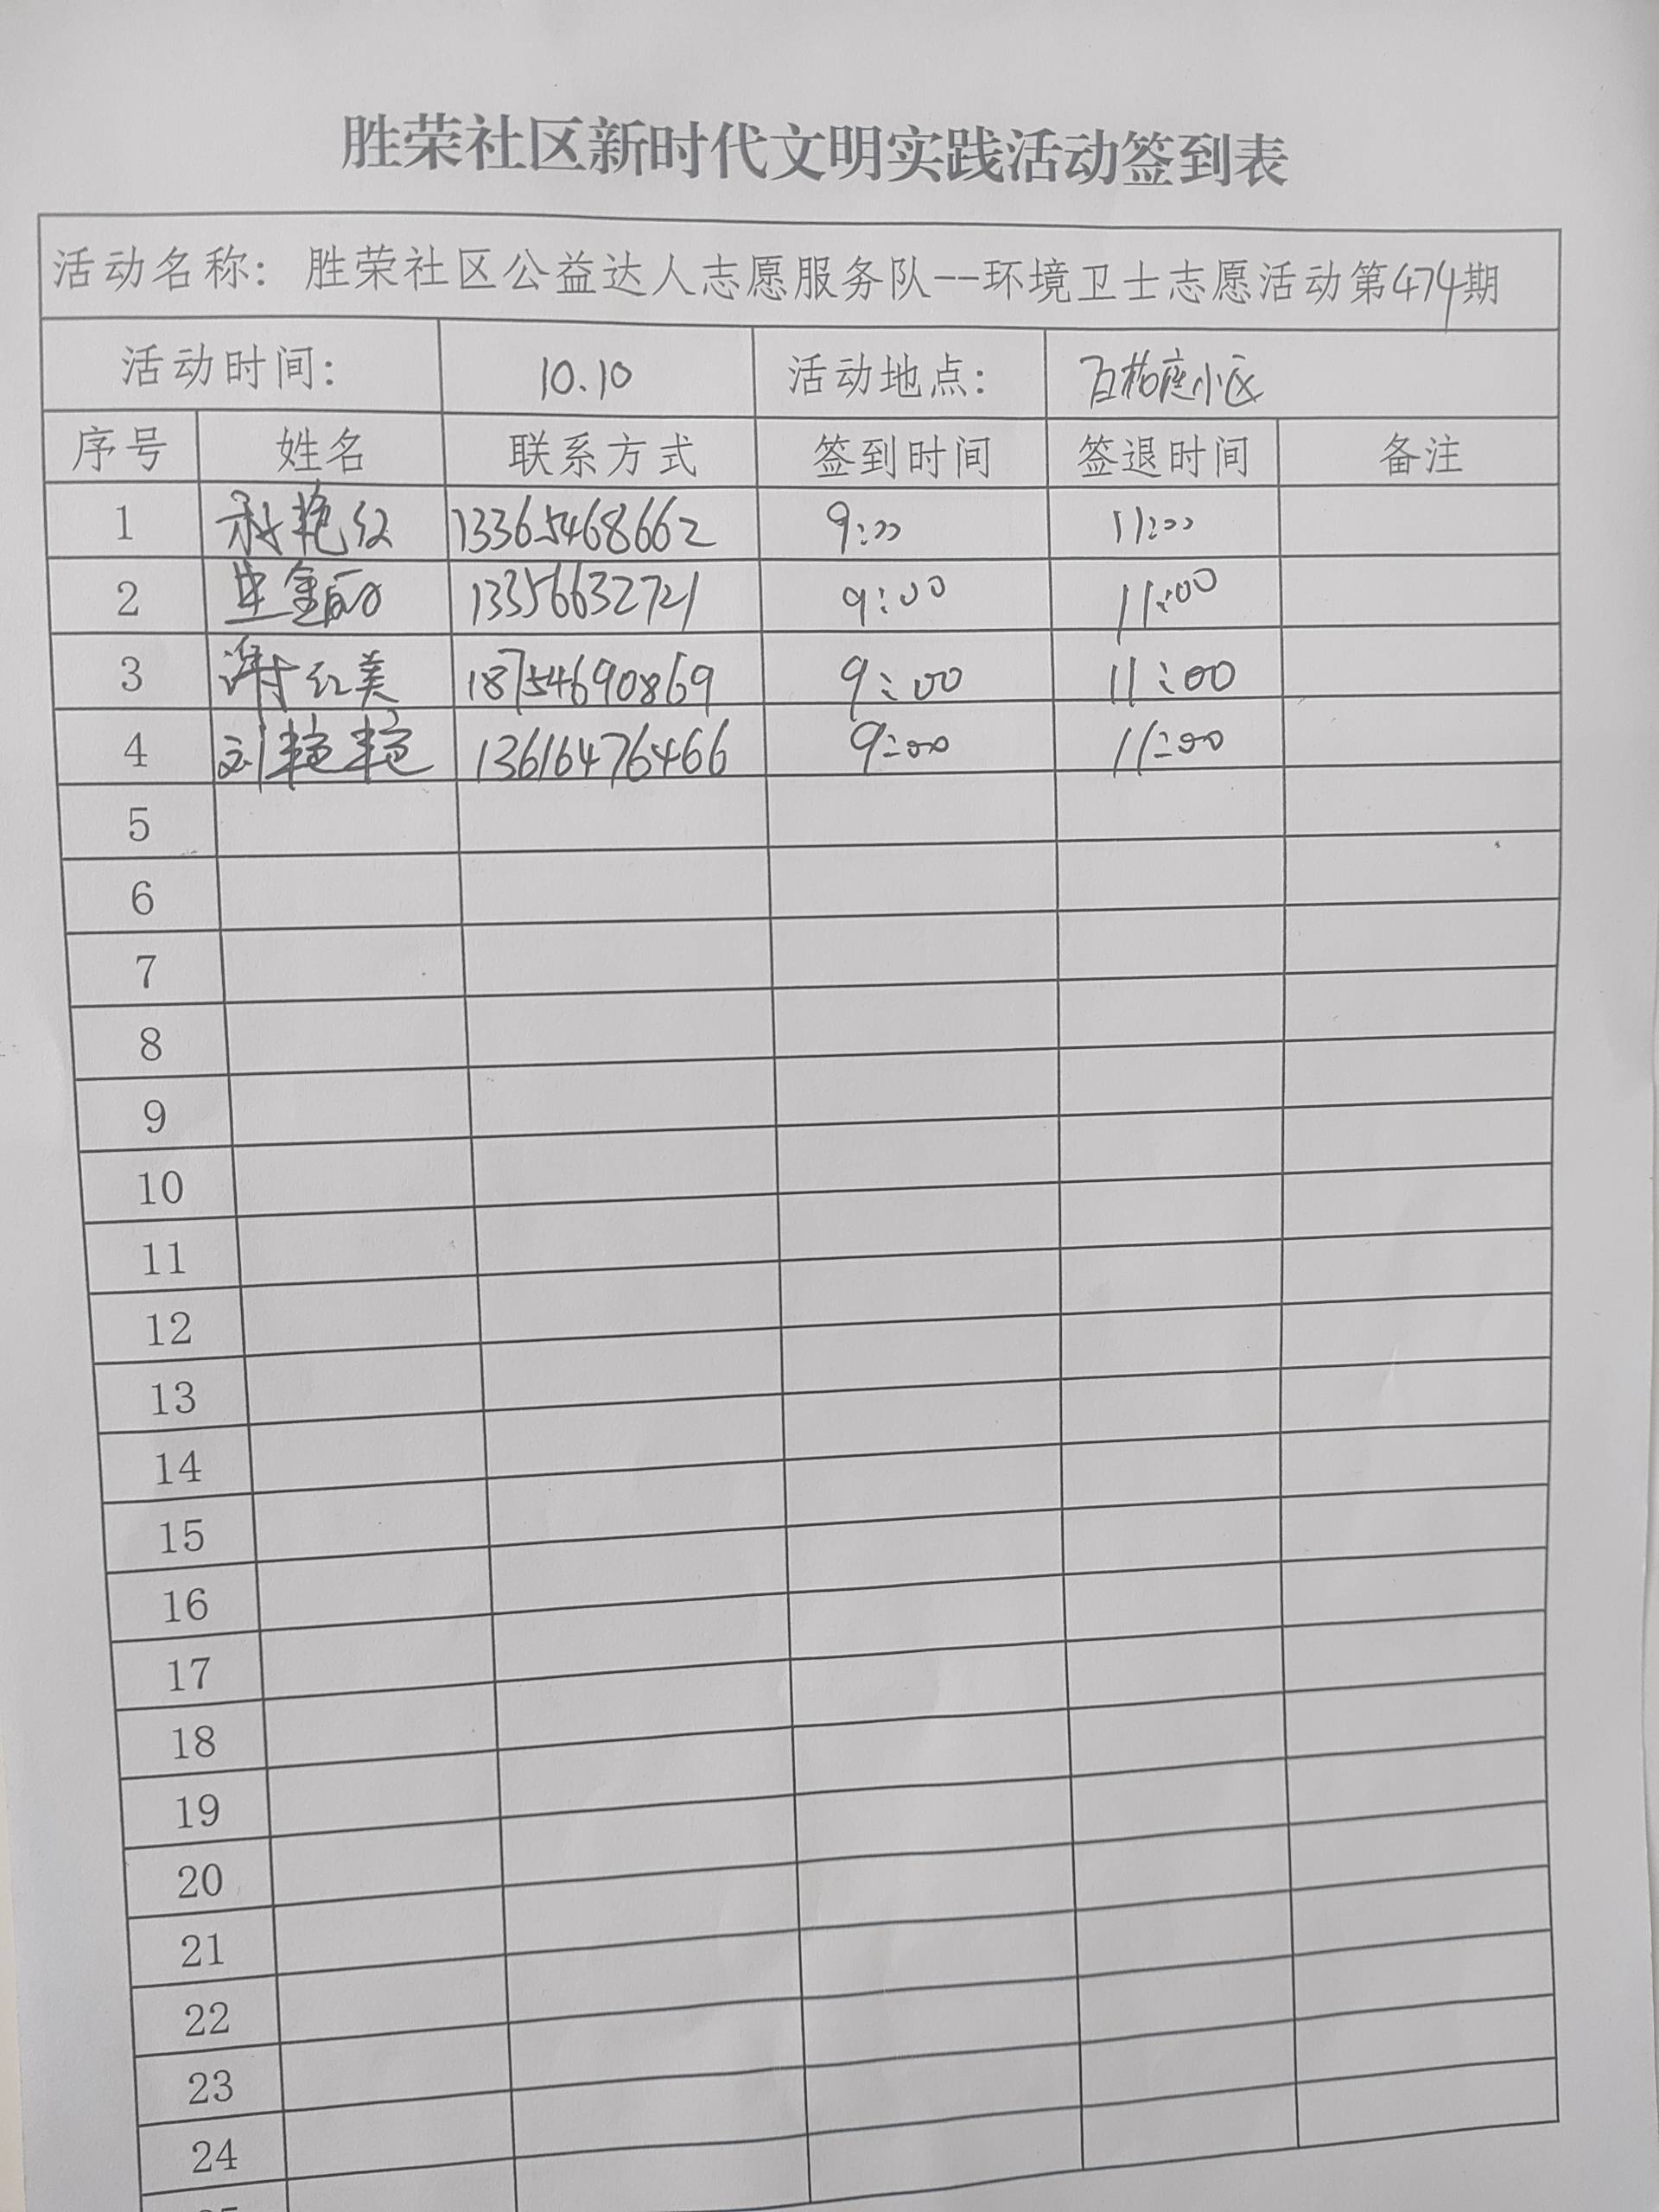 胜荣社区新时代文明实践活动签到表
活动名称：胜荣社区公益达人志愿服务队--环境卫士志愿活动第474期
活动时间： 10.10 活动地点： 小区
序号 姓名 联系方式 签到时间 签退时间 备注
1 艳红 13365468662 9:00 11:00
2 13356632721 9:00 11:00
3 谢红美 18754690869 9:00 11:00
4 刘艳艳 13616476466 9:00 11:00
5
6
7
8
9
10
11
12
13
14
15
16
17
18
19
20
21
22
23
24